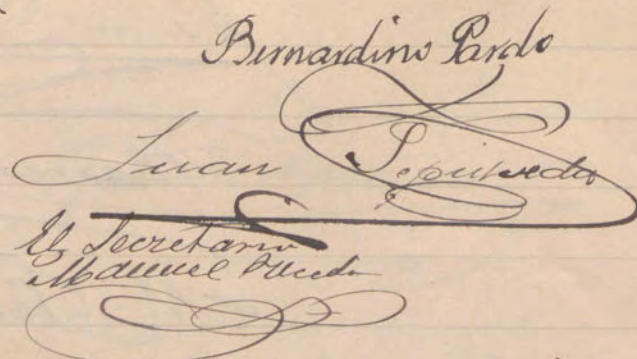 Bernardino Pardo
Juan Sepulveda
El Secretario
Manuel